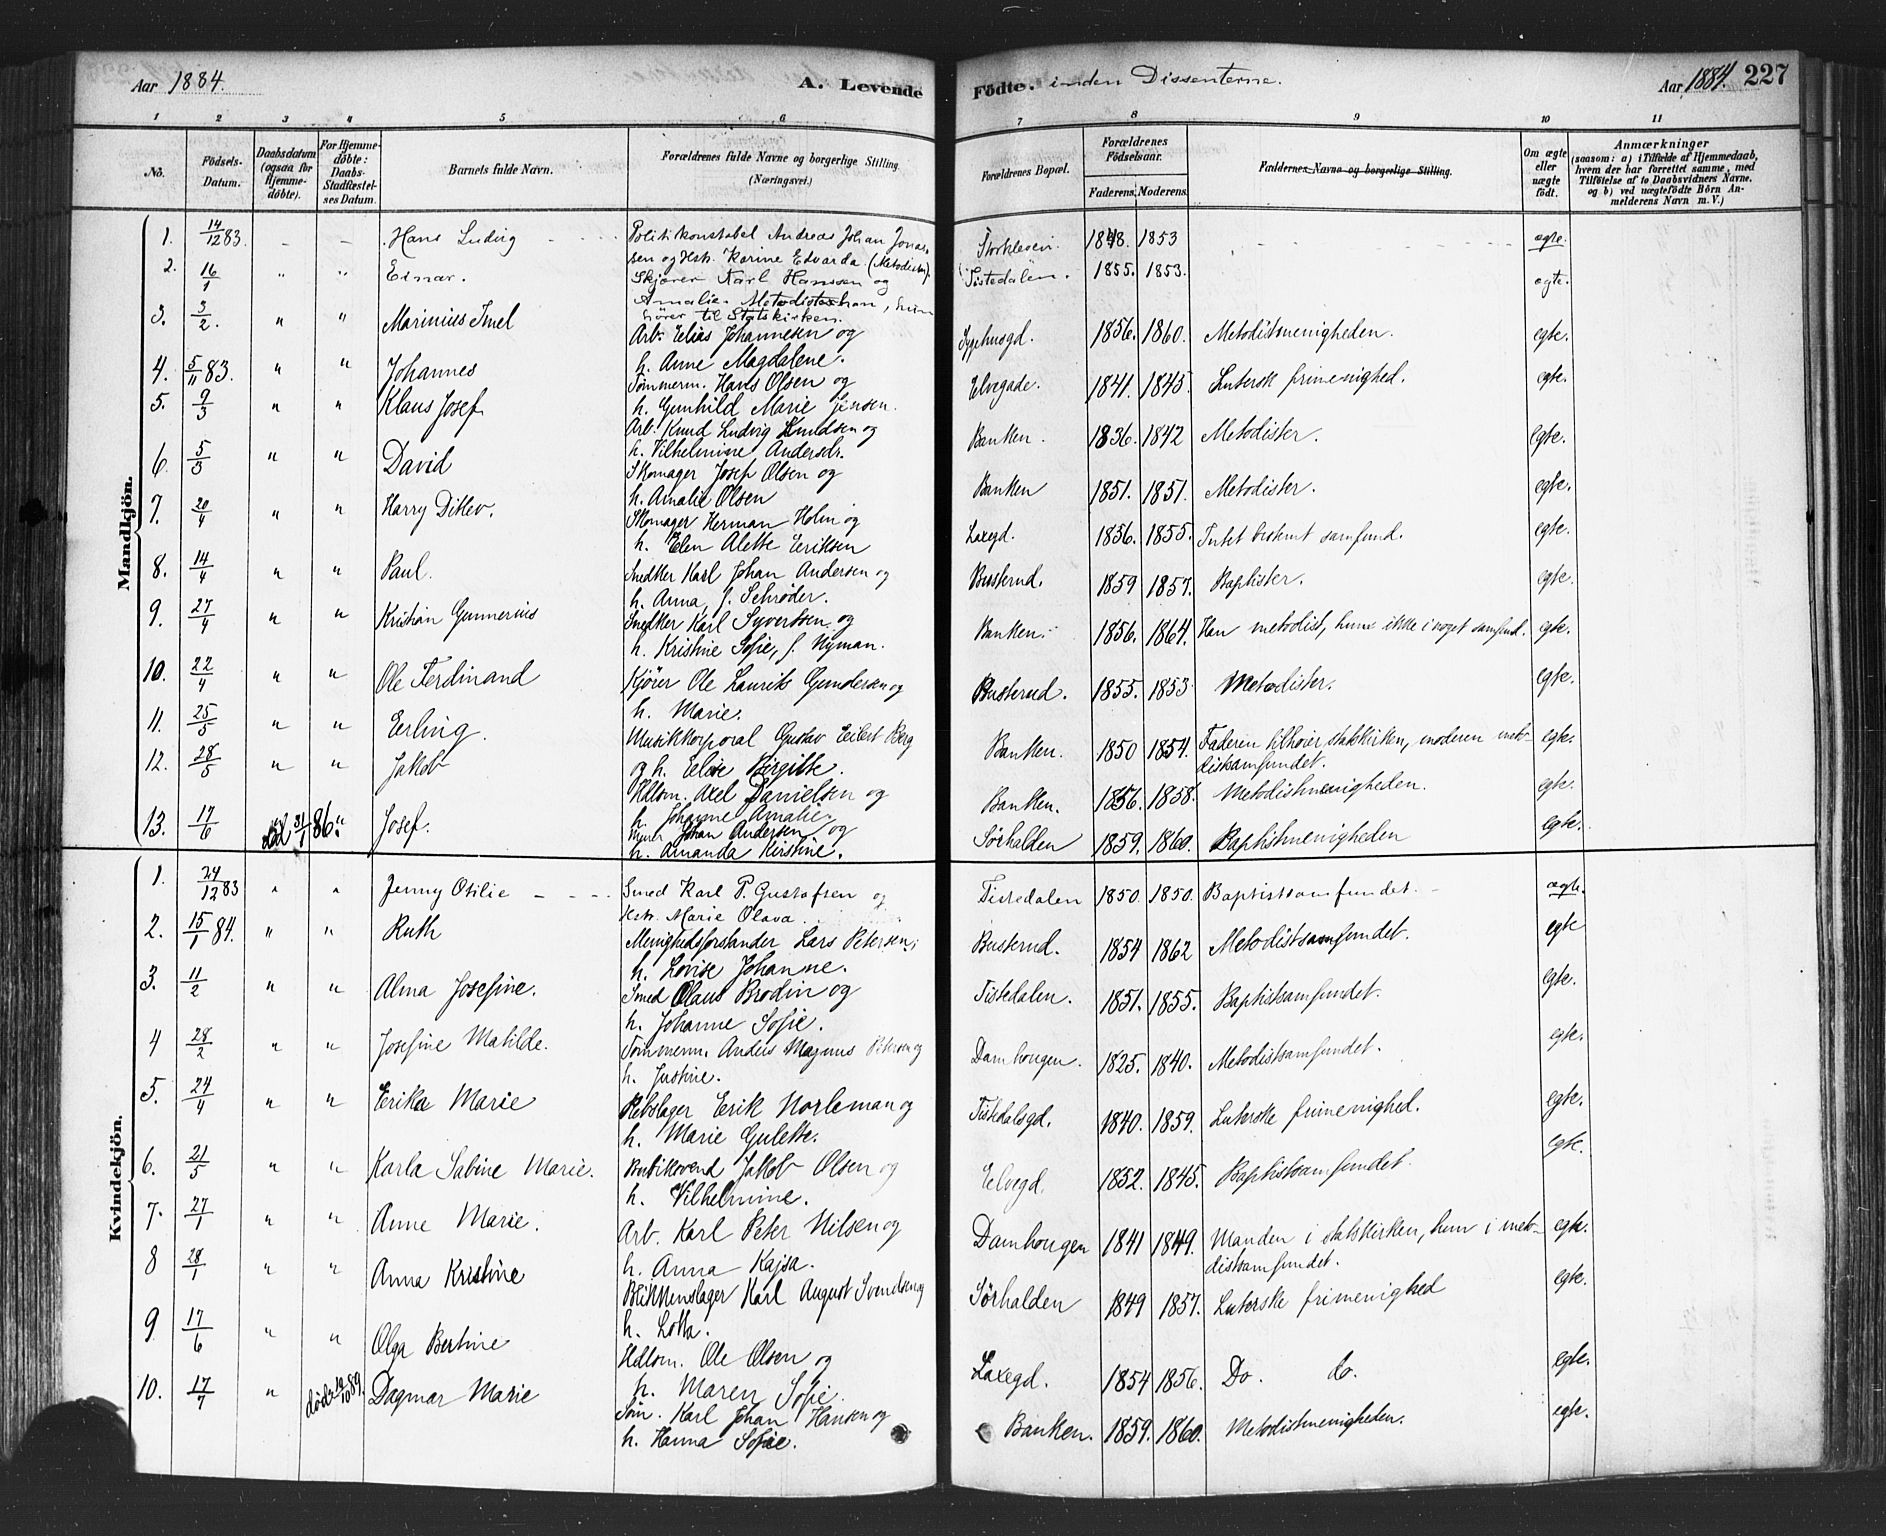 Aar 1884.
A. Levende
Fødte. inden Dissenterne.
Aar 1884. 227
1 2 3 4 5 6 7 8 9 10 11
No.
Fødsels-Datum.
Daabsdatum (ogsaa for Hjemmedøbte).
For Hjemmedøbte: Daabs-Stadfæstelses Datum.
Barnets fulde Navn.
Forældrenes fulde Navne og borgerlige Stilling. (Næringsvei.)
Forældrenes Bopæl.
Forældrenes Fødselsaar.
Faderens. Moderens.
Faddernes Navne og borgerlige Stilling.
Om ægte eller uægte født.
Anmærkninger
(saasom: a) i Tilfælde af Hjemmedaab, hvem der har forrettet samme, med Tilføielse af to Daabsvidners Navne, og b) ved uægtefødte Børn Anmelderens Navn m. V.)
Mandkjön.
1. 14/12 83. - - Hans Ludvig Politikonstabel Andreas Johan Jonassen og Hstr. Karine Edvarda (Metodister). 1848. 1853 ægte.
2. 16/1 " " Einar. Skjører Karl Hanssen og Amalie. Metodist han, hun hører til Statskirken. Tistedalen. 1855. 1853. ægte.
3. 3/2. " " Marinius Imel Arb. Elias Johannesen og h. Anne Magdalene. Sygehusgd. 1856. 1860. Metodistmenigheden. egte.
4. 5/11 83. " " Johannes Tømmerm. Hans Olsen og h. Gunhild Marie Jensen. Elvegade. 1841. 1845. Lutersk frimenighed. egte.
5. 9/3 " " Klaus Josef Arb. Knud Ludvig Knudsen og h. Vilhelmine Andersdr. Banken. 1836. 1842 Metodister. egte.
6. 5/3 " " David Skomager Josef Olsen og h. Amalie Olsen Banken 1851. 1851. Metodister. egte.
7. 20/4 " " Harry Ditlev. Skomager Herman Holm og h. Elen Alette Eriksen Laxegd. 1856. 1855. Intet bestemt samfund. egte.
8. 14/4 " " Paul. Snedker Karl Johan Andersen og h. Anna, f. Schrøder. Busterud. 1859 1857. Baptister. egte.
9. 27/4 " " Kristian Gunnerius Snedker Karl Syvertsen og h. Kristine Sofie, f. Nyman. Banken. 1856. 1864. Han metodist, hun ikke i noget samfund. egte.
10. 22/4 " " Ole Ferdinand Kjører Ole Laurits Gundersen og h. Marie. Busterud. 1855. 1853 Metodister. egte.
11. 25/5 " " Erling. Musikkorporal Gustav Eilert Berg og h. Elise Birgitte. Banken. 1850 1854. Faderen tilhører statskirken, moderen metodistsamfundet. egte.
12. 28/5 " " Jakob Hdlsm. Axel Danielsen og h. Johanne Amalie. Banken. 1856. 1858. Metodistmenigheden. egte.
13. 17/6 31/1 86. " Josef. Murer Johan Andersen og h. Amanda Kirstine. Sørhalden 1859. 1860. Baptistmenigheden egte.
Kvindekjön.
1. 24/12 83 " " Jenny Otilie Smed Karl P. Gustafsen og Hstr. Marie Olava. Tistedalen 1850. 1850. Baptistsamfundet. ægte.
2. 15/1 84. " " Ruth Menighedsforstander Lars Petersen, h. Lovise Johanne. Busterud. 1854 1862 Metodistsamfundet. egte
3. 11/2 " " Alma Josefine. Smed Olaus Brodin og h. Johanne Sofie. Tistedalen. 1851. 1855. Baptistsamfundet. egte.
4 28/2 " " Josefine Matilde. Tømmerm. Anders Magnus Petersen og h. Justine. Damhougen. 1825. 1840. Metodistsamfundet. egte.
5. 24/4 " " Erika Marie Rebslager Erik Norleman og h. Marie Gulette. Tistedalsgd. 1840. 1859. Luterske frimenighed. egte.
6. 21/5 " " Karla Sabine Marie. Jakob Olsen og h. Vilhelmine. Elvegd. 1852. 1845. Baptistsamfundet. egte.
7. 27/1 " " Anne Marie. Arb. Karl Peter Nilsen og h. Anna Kajsa. Damhougen 1841 1849. Manden i statskirken, hun i metodistsamfundet. egte.
8 28/1 " " Anna Kristine Blikkenslager Karl August Svendsen og h. Lotta. Sørhalden 1849 1857. Luterske frimenighed egte.
9 17/6 " " Olga Bertine Hdlsm. Ole Olsen og h. Maren Sofie. Laxegd. 1854 1856. Do. do. egte.
10. 17/7 " død 12/10 89. Dagmar Marie Søm. Karl Johan Hansen og h. Hanna Sofie. Banken. 1859. 1860. Metodistmenigheden. egte.